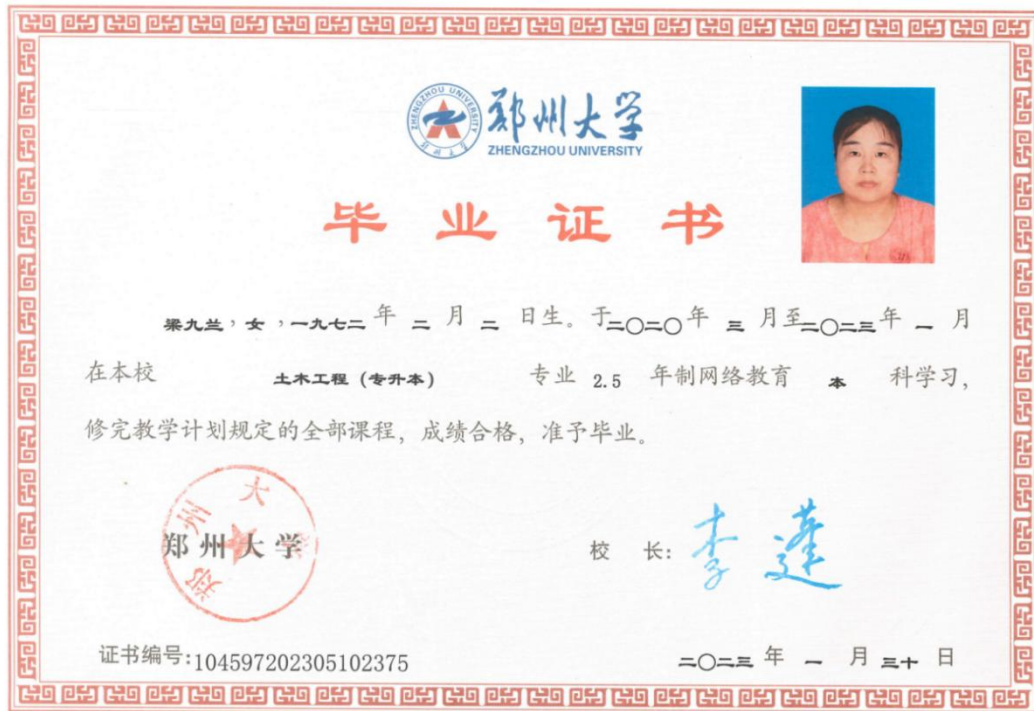 ZHENGZHOU UNIVERSITY
郑州大学
ZHENGZHOU UNIVERSITY
毕业证书
梁九兰，女，一九七二年 二 月 二 日生。于二〇二〇年 三 月至二〇二三年 一 月
在本校 土木工程（专升本） 专业 2.5 年制网络教育 本 科学习，
修完教学计划规定的全部课程，成绩合格，准予毕业。
郑州大学
郑州大学
校 长：
证书编号:104597202305102375
二〇二三 年 一 月 三十 日